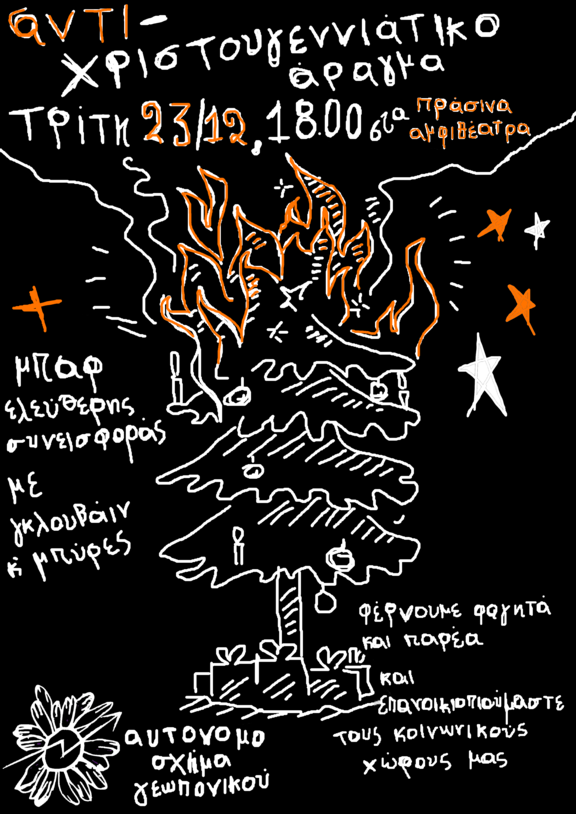 αντι-
χριστουγεννιάτικο
άραγμα
ΤΡΙΤΗ 23/12, 18.00 στα πράσινα
αμφιθέατρα
μπαρ
ελεύθερης
συνεισφοράς
με
γκλουβάιν
κ' μπύρες
φέρνουμε φαγητά
και παρέα
και
επανοικιοπιούμαστε
τους κοινωνικούς
χώρους μας
αυτόνομο
σχήμα
γεωπονικού